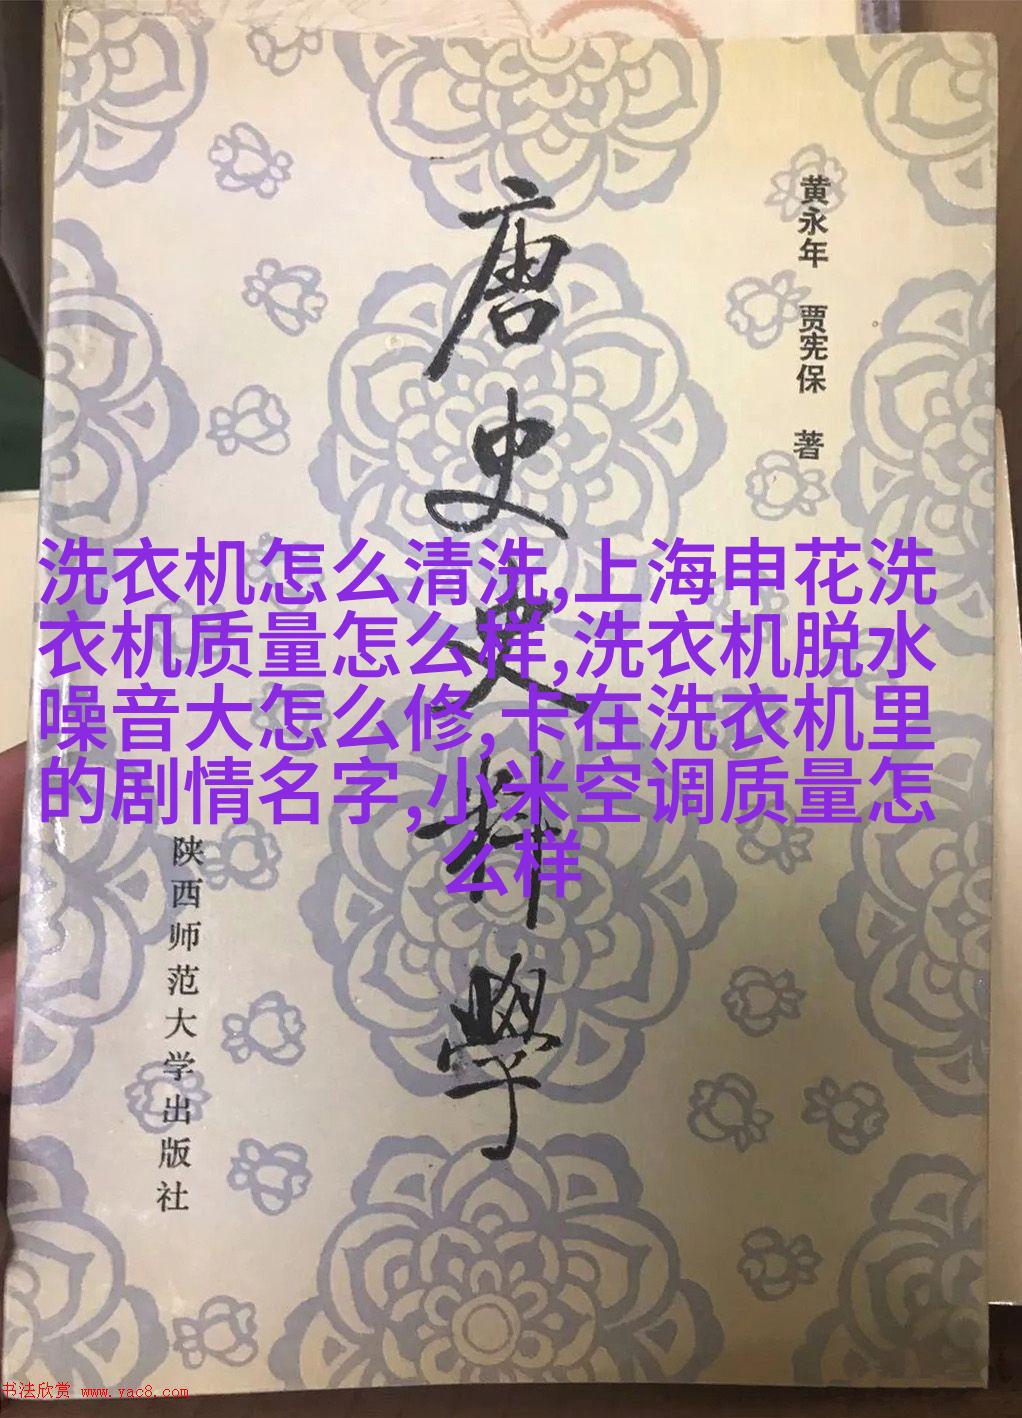 黄永年 贾宪保 著
唐史史料學
洗衣机怎么清洗,上海申花洗
衣机质量怎么样,洗衣机脱水
噪音大怎么修,卡在洗衣机里
的剧情名字,小米空调质量怎
么样
陕西师范大学出版社
书法欣赏 www.yac8.com